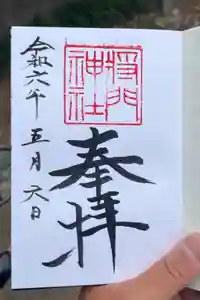 神社
奉拝
令和六年
五月
六日